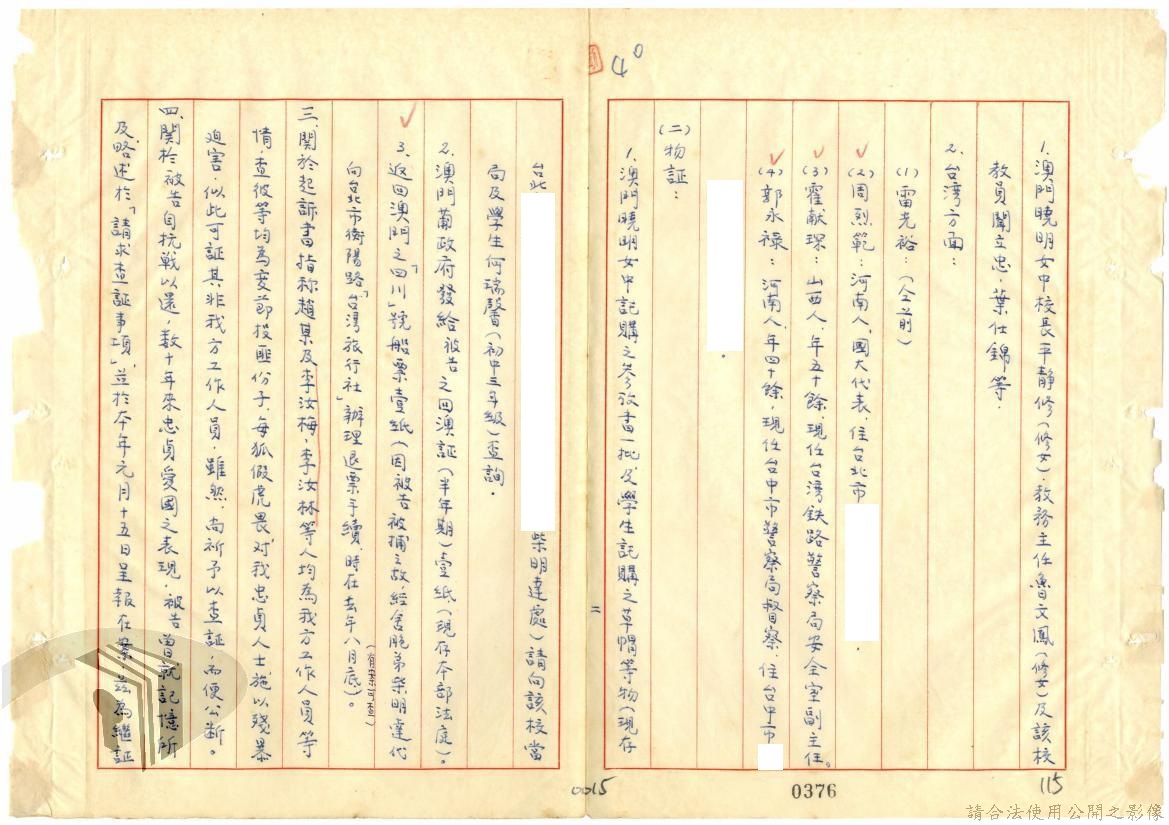 40
1.澳門曉明女中校長平靜修(修女)教務主任魯文鳳(修女)及該校
教員闞立忠,葉仕錦等.
2.台湾方面:
(1)雷光裕:(仝前)
(2)周烈範:河南人,國大代表,住台北市
(3)霍献琛:山西人,年五十餘,現任台湾鉄路警察局安全室副主任。
(4)郭永祿:河南人,年四十餘,現任台中市警察局督察,住台中市
(二)物証:
1.澳門曉明女中託購之參攷書一批及學生託購之草帽等物(現存
115
0376
二
台北
柴明達處)請向該校當
局及學生何瑞馨(初中三年級)查詢.
2.澳門葡政府發給被告之回澳証(半年期)壹紙(現存本部法庭)。
3.返回澳門之「四川」號船票壹紙(因被告被捕之故,經舍胞弟柴明達代
向台北市衡陽路「台湾旅行社」辦理退票手續,時在去年八月底)。
(有案可查)
三.關於起訴書指称趙某及李汝梅,李汝林等人均為我方工作人員等
情,查彼等均為变節投匪份子,每狐假虎畏,对我忠貞人士施以殘暴
迫害,似此可証其非我方工作人員,雖然,尚祈予以查証,而便公断。
四.関於被告自抗戰以還,数十年來忠貞爱國之表現,被告曾就記憶所
及略述於「請求查証事項」,並於本年元月十五日呈報在案,茲為継証
0015
請合法使用公開之影像